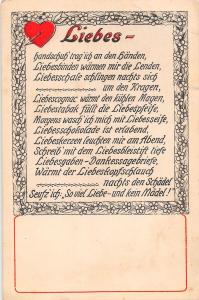 Liebes-
handschuh' trag ich an den Händen,
Liebesbinden wärmen mir die Lenden,
Liebesschals schlingen nachts sich
um den Kragen,
Liebescognac wärmt den kühlen Magen,
Liebestabak füllt die Liebespfeife,
Morgens wasch ich mich mit Liebesseife,
Liebesschokolade ist erlabend,
Liebeskerzen leuchten mir am Abend,
Schreib' mit dem Liebesbleistift tiefe
Liebesgaben-Dankessagebriefe,
Wärmt der Liebeskopfschlauch
nachts den Schädel
Seufz ich: „So viel Liebe- und kein Mädel!"